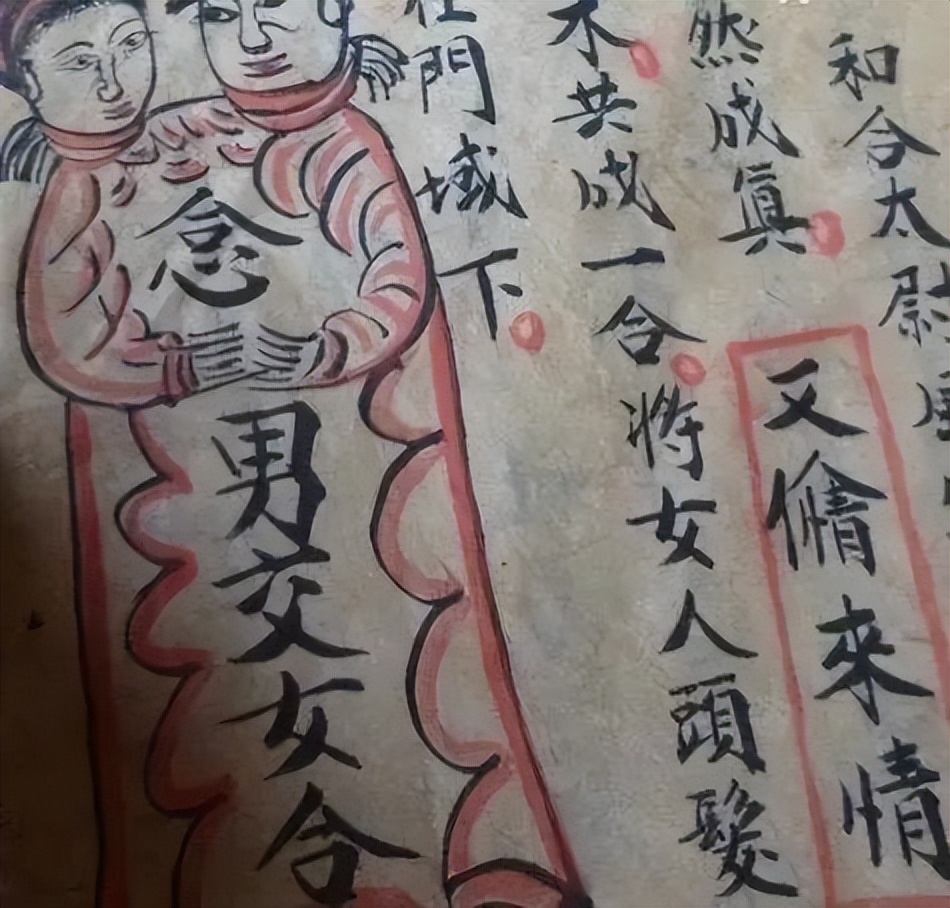 和合太尉
又偹來情
然成真
共成一合將女人頭髮
門域下
念男交女合